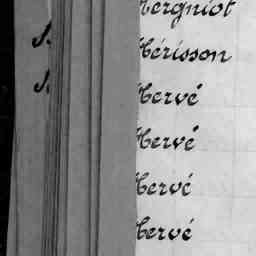 Mergniot
Hérisson
Hervé
Hervé
Hervé
Hervé